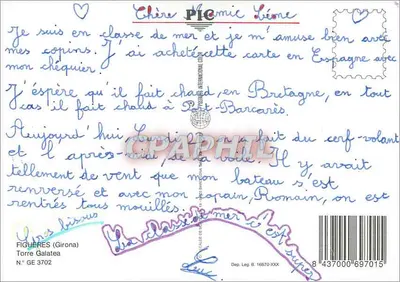 Chère Mamie Léone
PIC
Je suis en classe de mer et je m'amuse bien avec
mes copins. J'ai acheter cette carte en Espagne avec
mon chéquier.
J'éspère qu'il fait chaud, en Bretagne, en tout
cas il fait chaud à Port-Barcarès.
Aujourd'hui Lundi fait du cerf-volant
et l'après-midi de la voile. Il y avait
tellement de vent que mon bateau s'est
renversé et avec mon copain, Romain, on est
rentrés tous mouillés.
CPAPHIL
Gros bisous
La classe de mer c'est super
FIGUERES (Girona)
Torre Galatea
N.º GE 3702
Dep. Leg. B. 16670-XXX
8 437000 697015